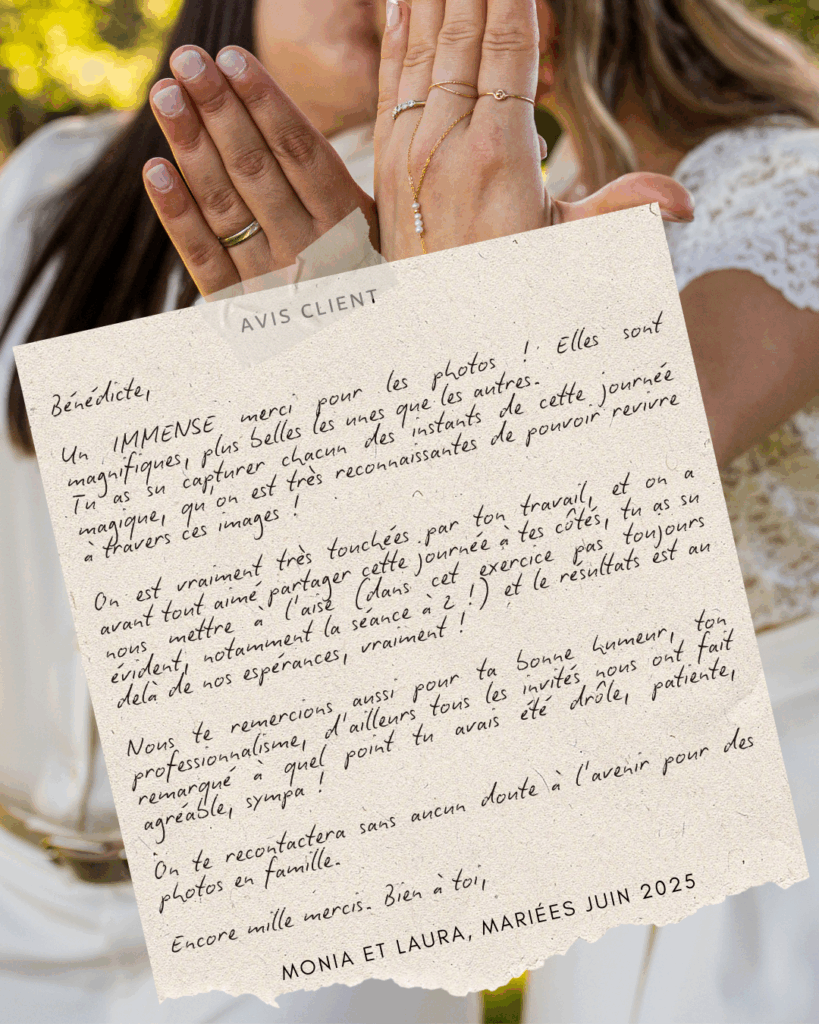 AVIS CLIENT
Bénédicte,
Un IMMENSE merci pour les photos ! Elles sont
magnifiques, plus belles les unes que les autres.
Tu as su capturer chacun des instants de cette journée
magique, qu'on est très reconnaissantes de pouvoir revivre
à travers ces images !
On est vraiment très touchées par ton travail, et on a
avant tout aimé partager cette journée à tes côtés, tu as su
nous mettre à l'aise (dans cet exercice pas toujours
évident, notamment la séance à 2 !) et le résultats est au
delà de nos espérances, vraiment !
Nous te remercions aussi pour ta bonne humeur, ton
professionnalisme, d'ailleurs tous les invités nous ont fait
remarqué à quel point tu avais été drôle, patiente,
agréable, sympa !
On te recontactera sans aucun doute à l'avenir pour des
photos en famille.
Encore mille mercis. Bien à toi,
MONIA ET LAURA, MARIÉES JUIN 2025